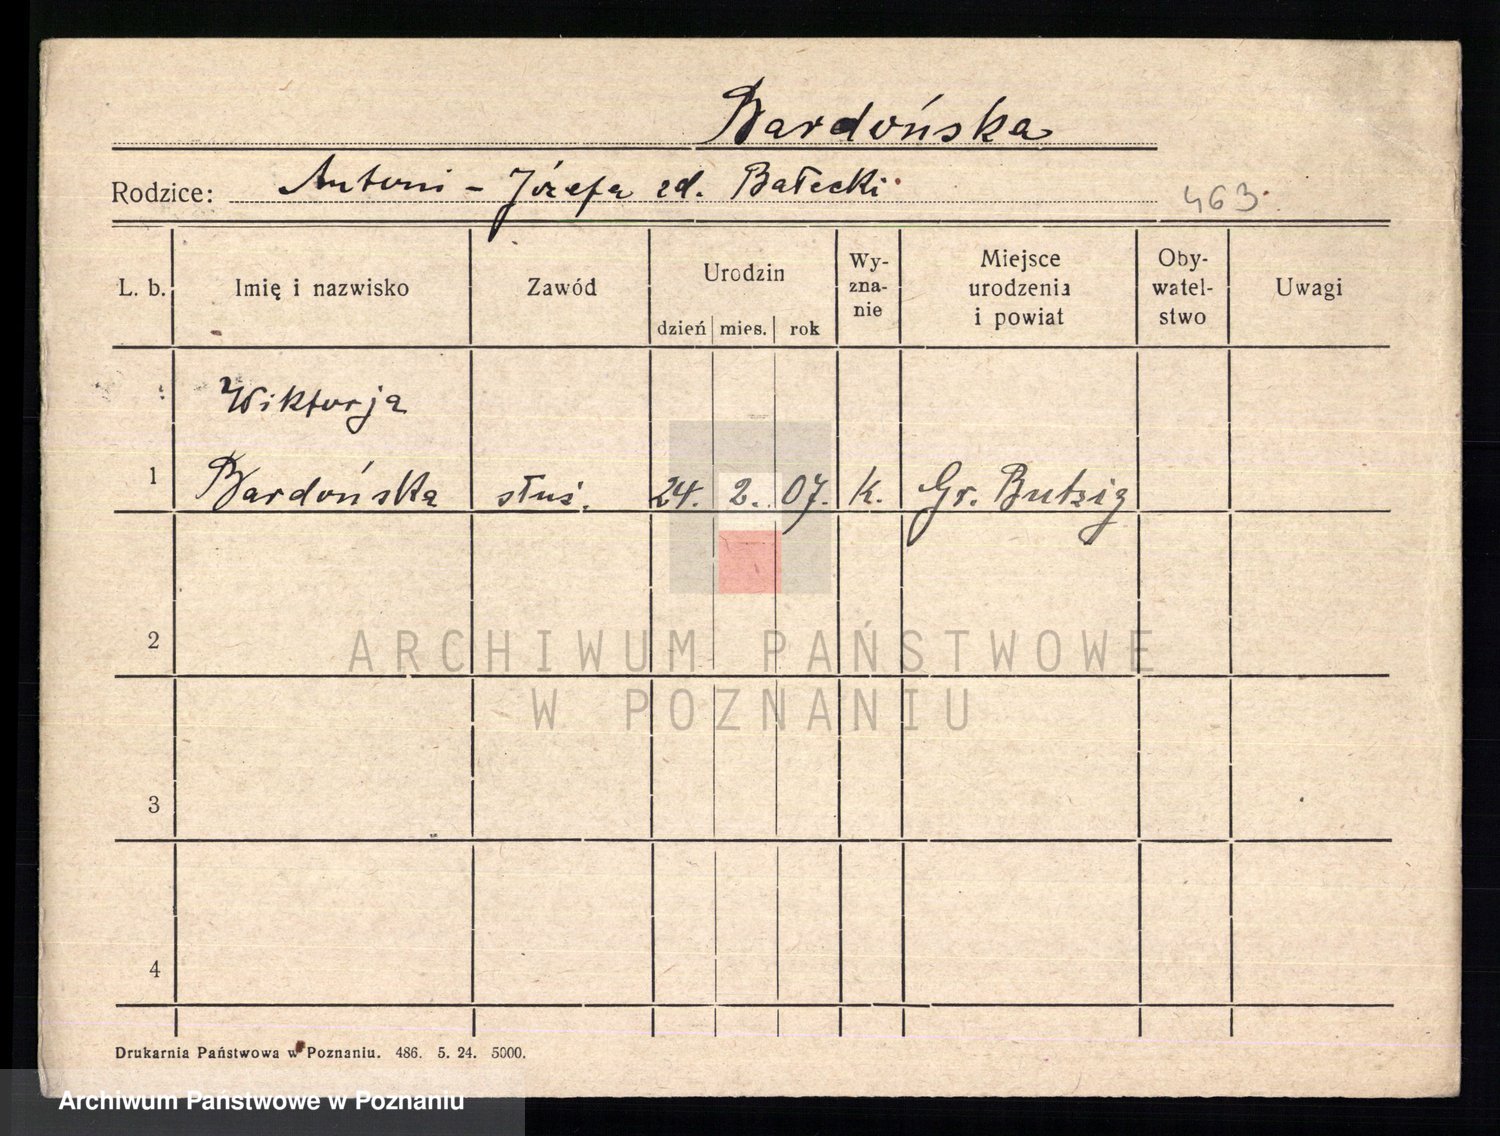 Bardońska
Rodzice: Antoni - Józefa zd. Bałecki
463.
L. b. Imię i nazwisko Zawód Urodzin dzień mies. rok Wy-zna-nie Miejsce urodzenia i powiat Oby-watel-stwo Uwagi
Wiktorja
1 Bardońska służ. 24. 2. 07. k. Gr. Butzig
2
ARCHIWUM PAŃSTWOWE
W POZNANIU
3
4
Drukarnia Państwowa w Poznaniu. 486. 5. 24. 5000.
Archiwum Państwowe w Poznaniu